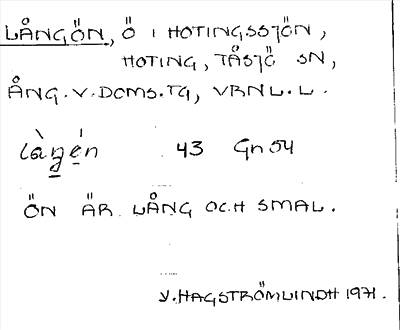 LÅNGÖN, Ö I HOTINGSSJÖN,
HOTING, TÅSJÖ SN,
ÅNG.V.DOMS.TG, VBNL.L.
43 Gn 54
ÖN ÄR LÅNG OCH SMAL.
V.HAGSTRÖMLINDH 1971.